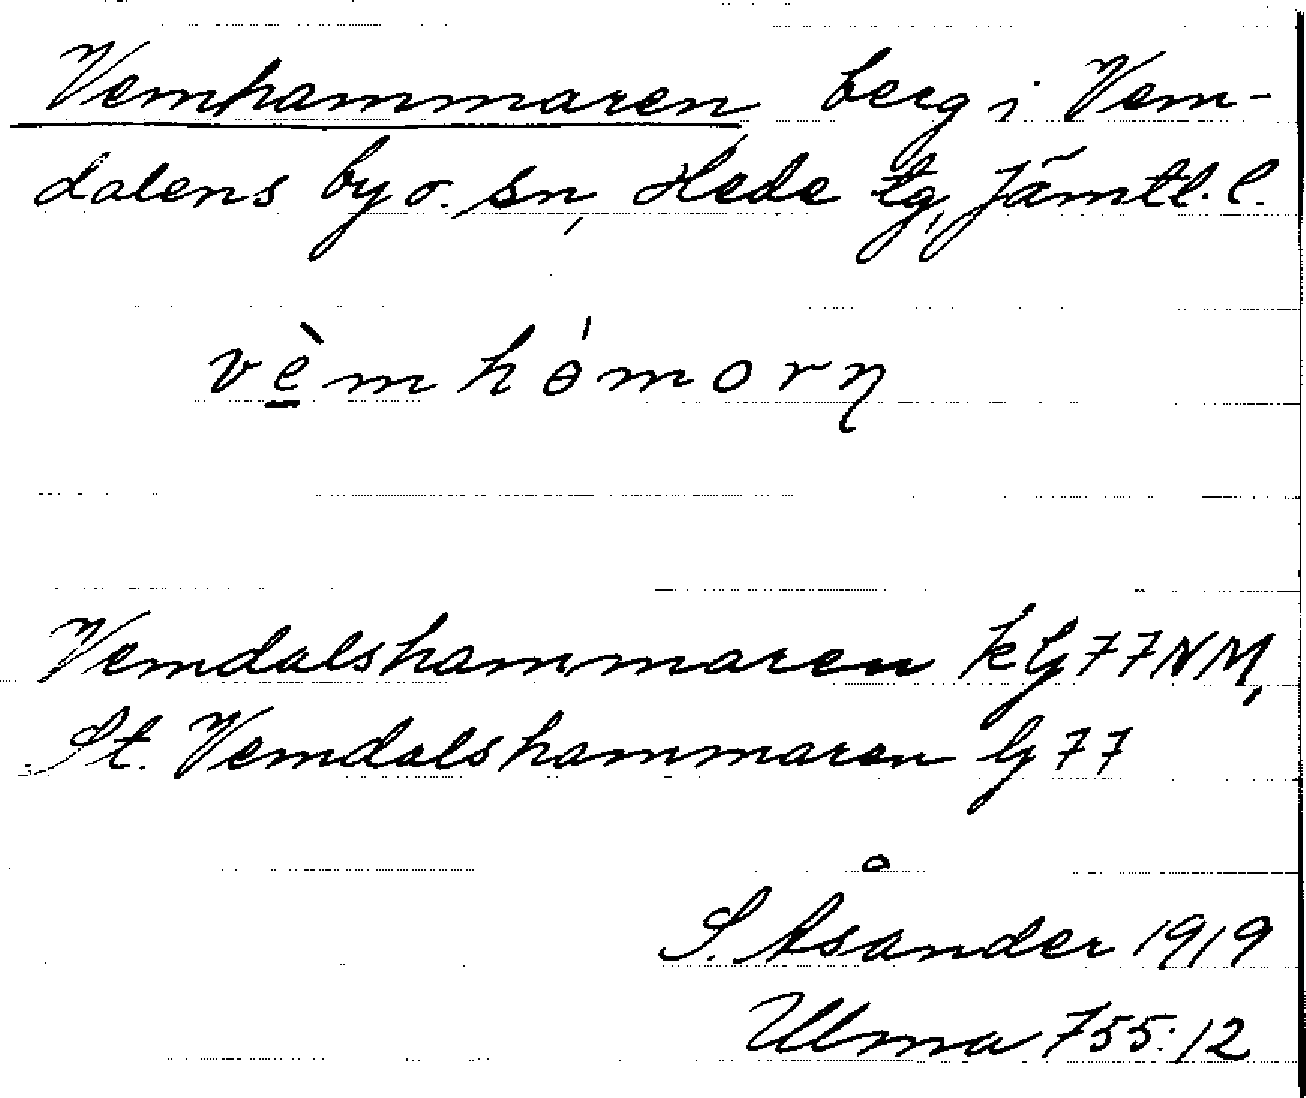 Vemhammaren berg i Vem-
dalens by o. sn, Hede tg, Jämtl. l.
vè̲mhǝ́morņ
Vemdalshammaren kG77NM,
St. Vemdalshammaren G77
S. Åsander 1919
Ulma 755:12